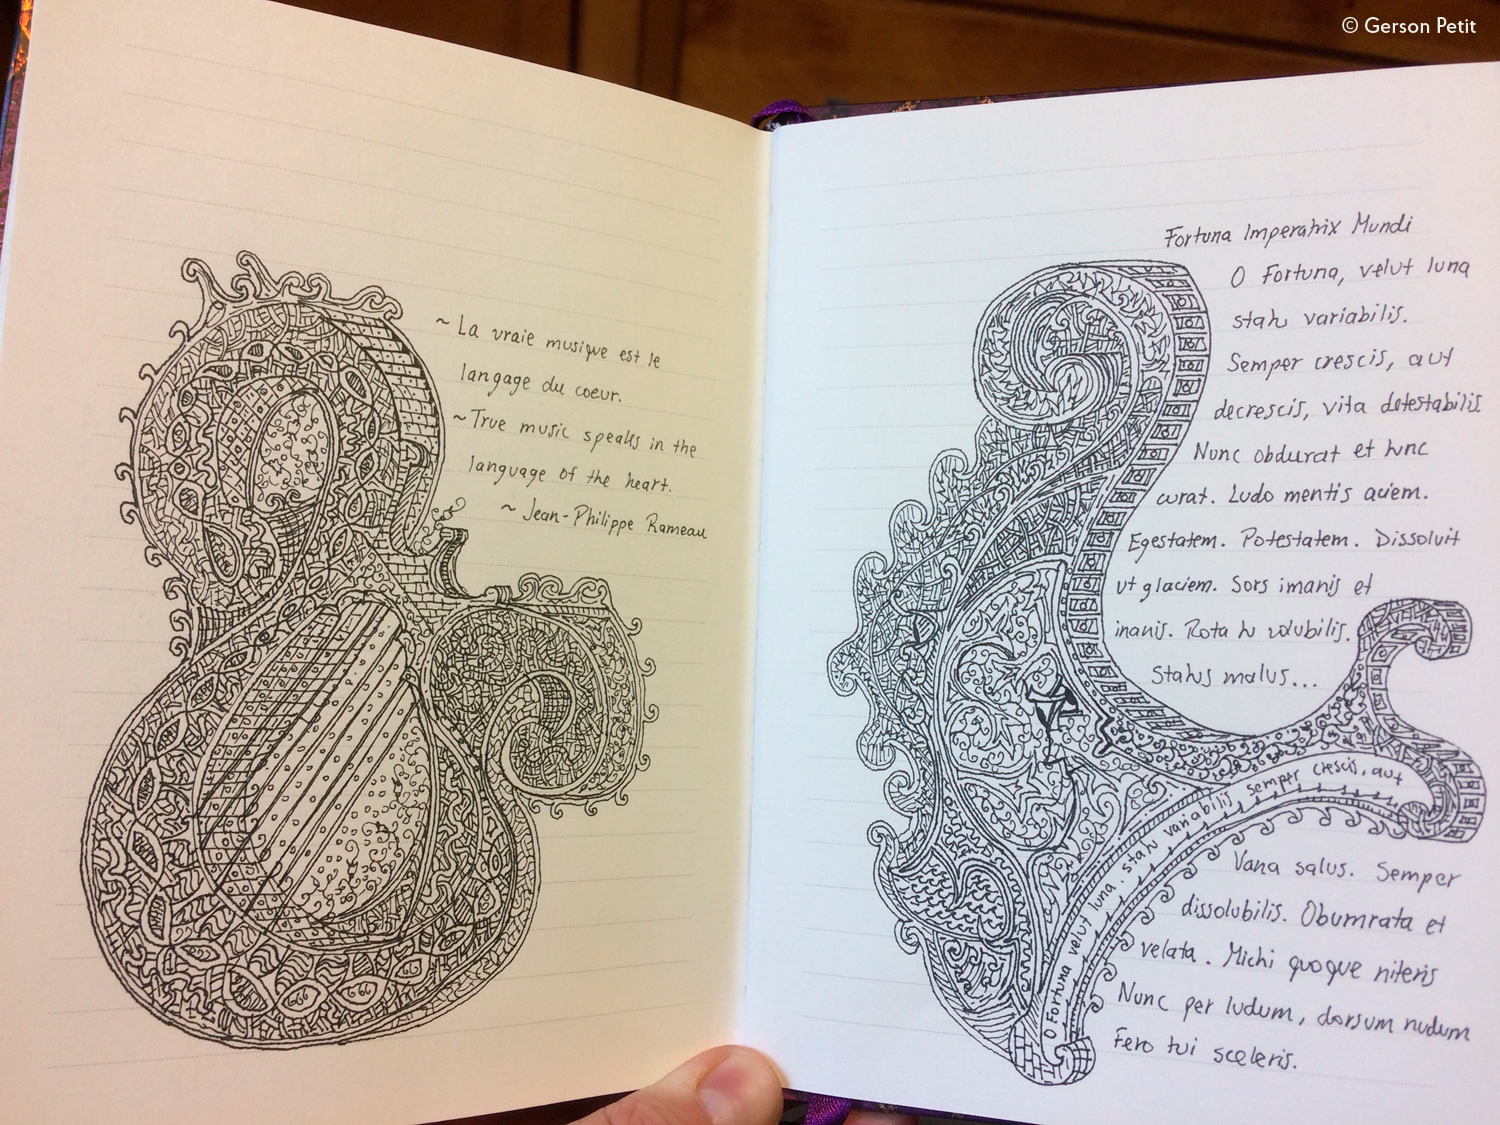 © Gerson Petit
~ La vraie musique est le
langage du coeur.
~ True music speaks in the
language of the heart.
~ Jean-Philippe Rameau
Fortuna Imperatrix Mundi
O Fortuna, velut luna
statu variabilis.
Semper crescis, aut
decrescis, vita detestabilis
Nunc obdurat et tunc
curat. Ludo mentis aciem.
Egestatem. Potestatem. Dissoluit
ut glaciem. Sors imanis et
inanis. Rota tu volubilis.
Status malus...
O Fortuna velut luna. statu variabilis semper crescis, aut
Vana salus. Semper
dissolubilis. Obumrata et
velata. Michi quoque niteris
Nunc per ludum, dorsum nudum
Fero tui sceleris.